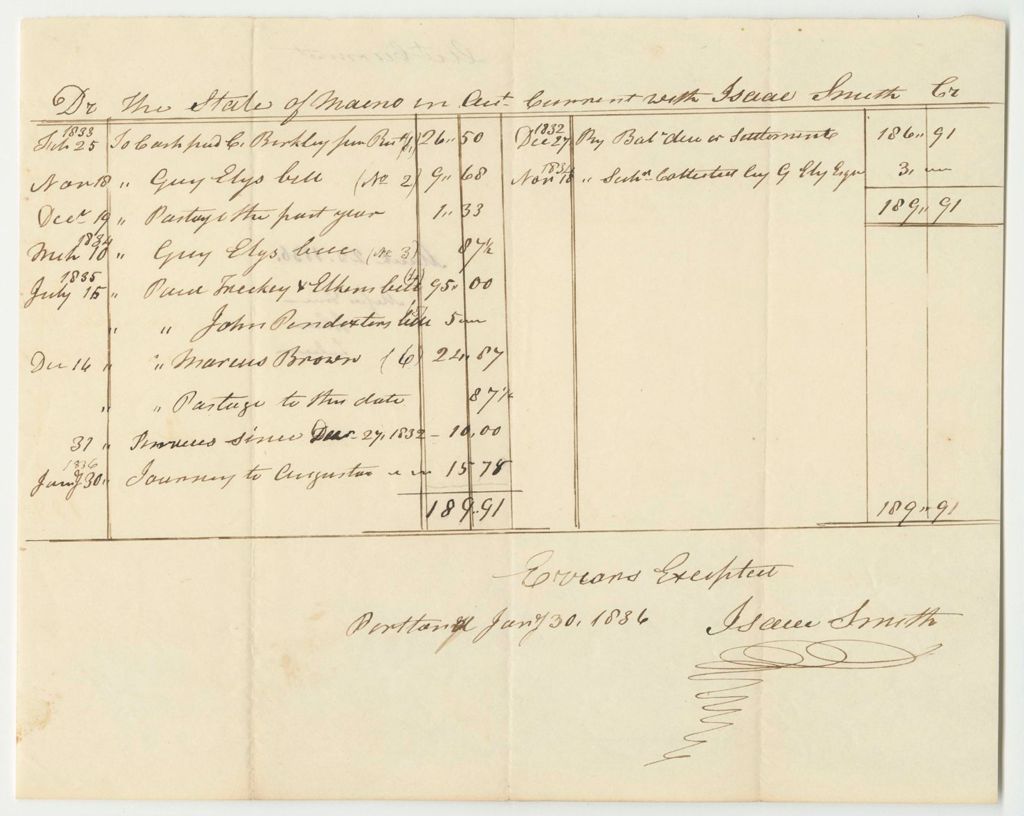 Dr The State of Maine in Act Current with Isaac Smith Cr
1833
Feb 25 To Cash paid C. Berkley per Rect (1) 26 " 50
Nov 18 " Guy Elys bill (No 2) 9 " 68
Decr 19 " Postage the past year 1 " 33
1834
Mch 10 " Guy Elys bill (No 3) 87½
1835
July 15 " Paid & Elkens bill 95 " 00
" " John Pendexters bill 5 "
Dec 14 " Marcus Brown (6) 24 " 87
" " Postage to this date 87½
31 " Services since Decr 27, 1832 - 10,00
1836
Jany 30 " Journey to Augusta " " 15 78
189 " 91
1832
Dec 27 By Bal due on Settlement 186 " 91
1834
Nov 18 " Collected by G Ely Esqr 3 "
189 " 91
189 " 91
Errors Excepted
Portland Jany 30, 1836 Isaac Smith